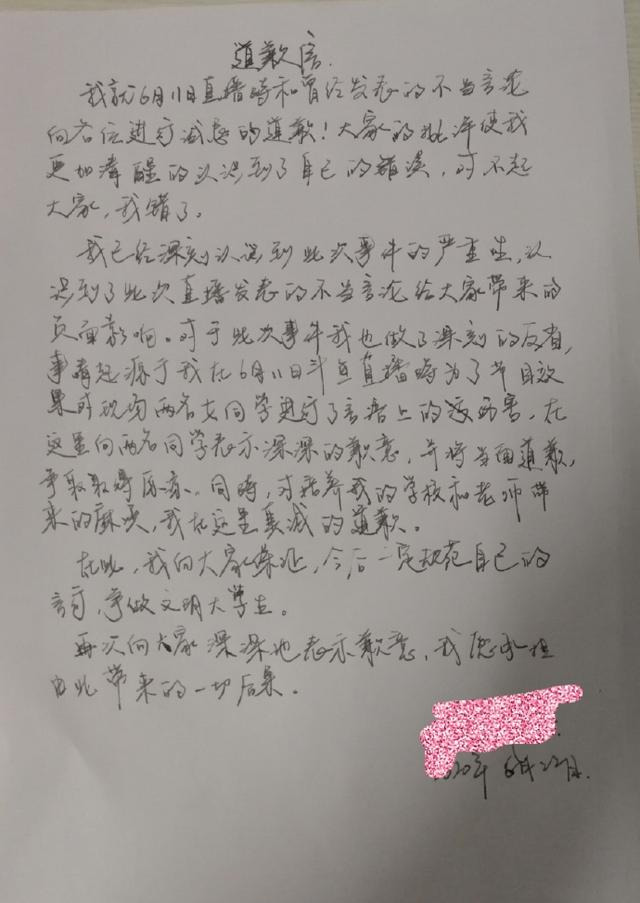 道歉信
我就6月11日直播时和曾经发表的不当言论
向各位进行诚恳的道歉！大家的批评使我
更加清醒的认识到了自己的错误，对不起
大家，我错了。
我已经深刻认识到此次事件的严重性，认
识到了此次直播发表的不当言论给大家带来的
负面影响。对于此次事件我也做了深刻的反省，
事情起源于我在6月11日斗鱼直播时为了节目效
果对现场两名女同学进行了言语上的伤害，在
这里向两名同学表示深深的歉意，并将当面道歉，
争取取得原谅。同时，对培养我的学校和老师带
来的麻烦，我在这里真诚的道歉。
在此，我向大家保证，今后一定规范自己的
言行，争做文明大学生。
再次向大家深深地表示歉意，我愿承担
由此带来的一切后果。
2020年6月22日.